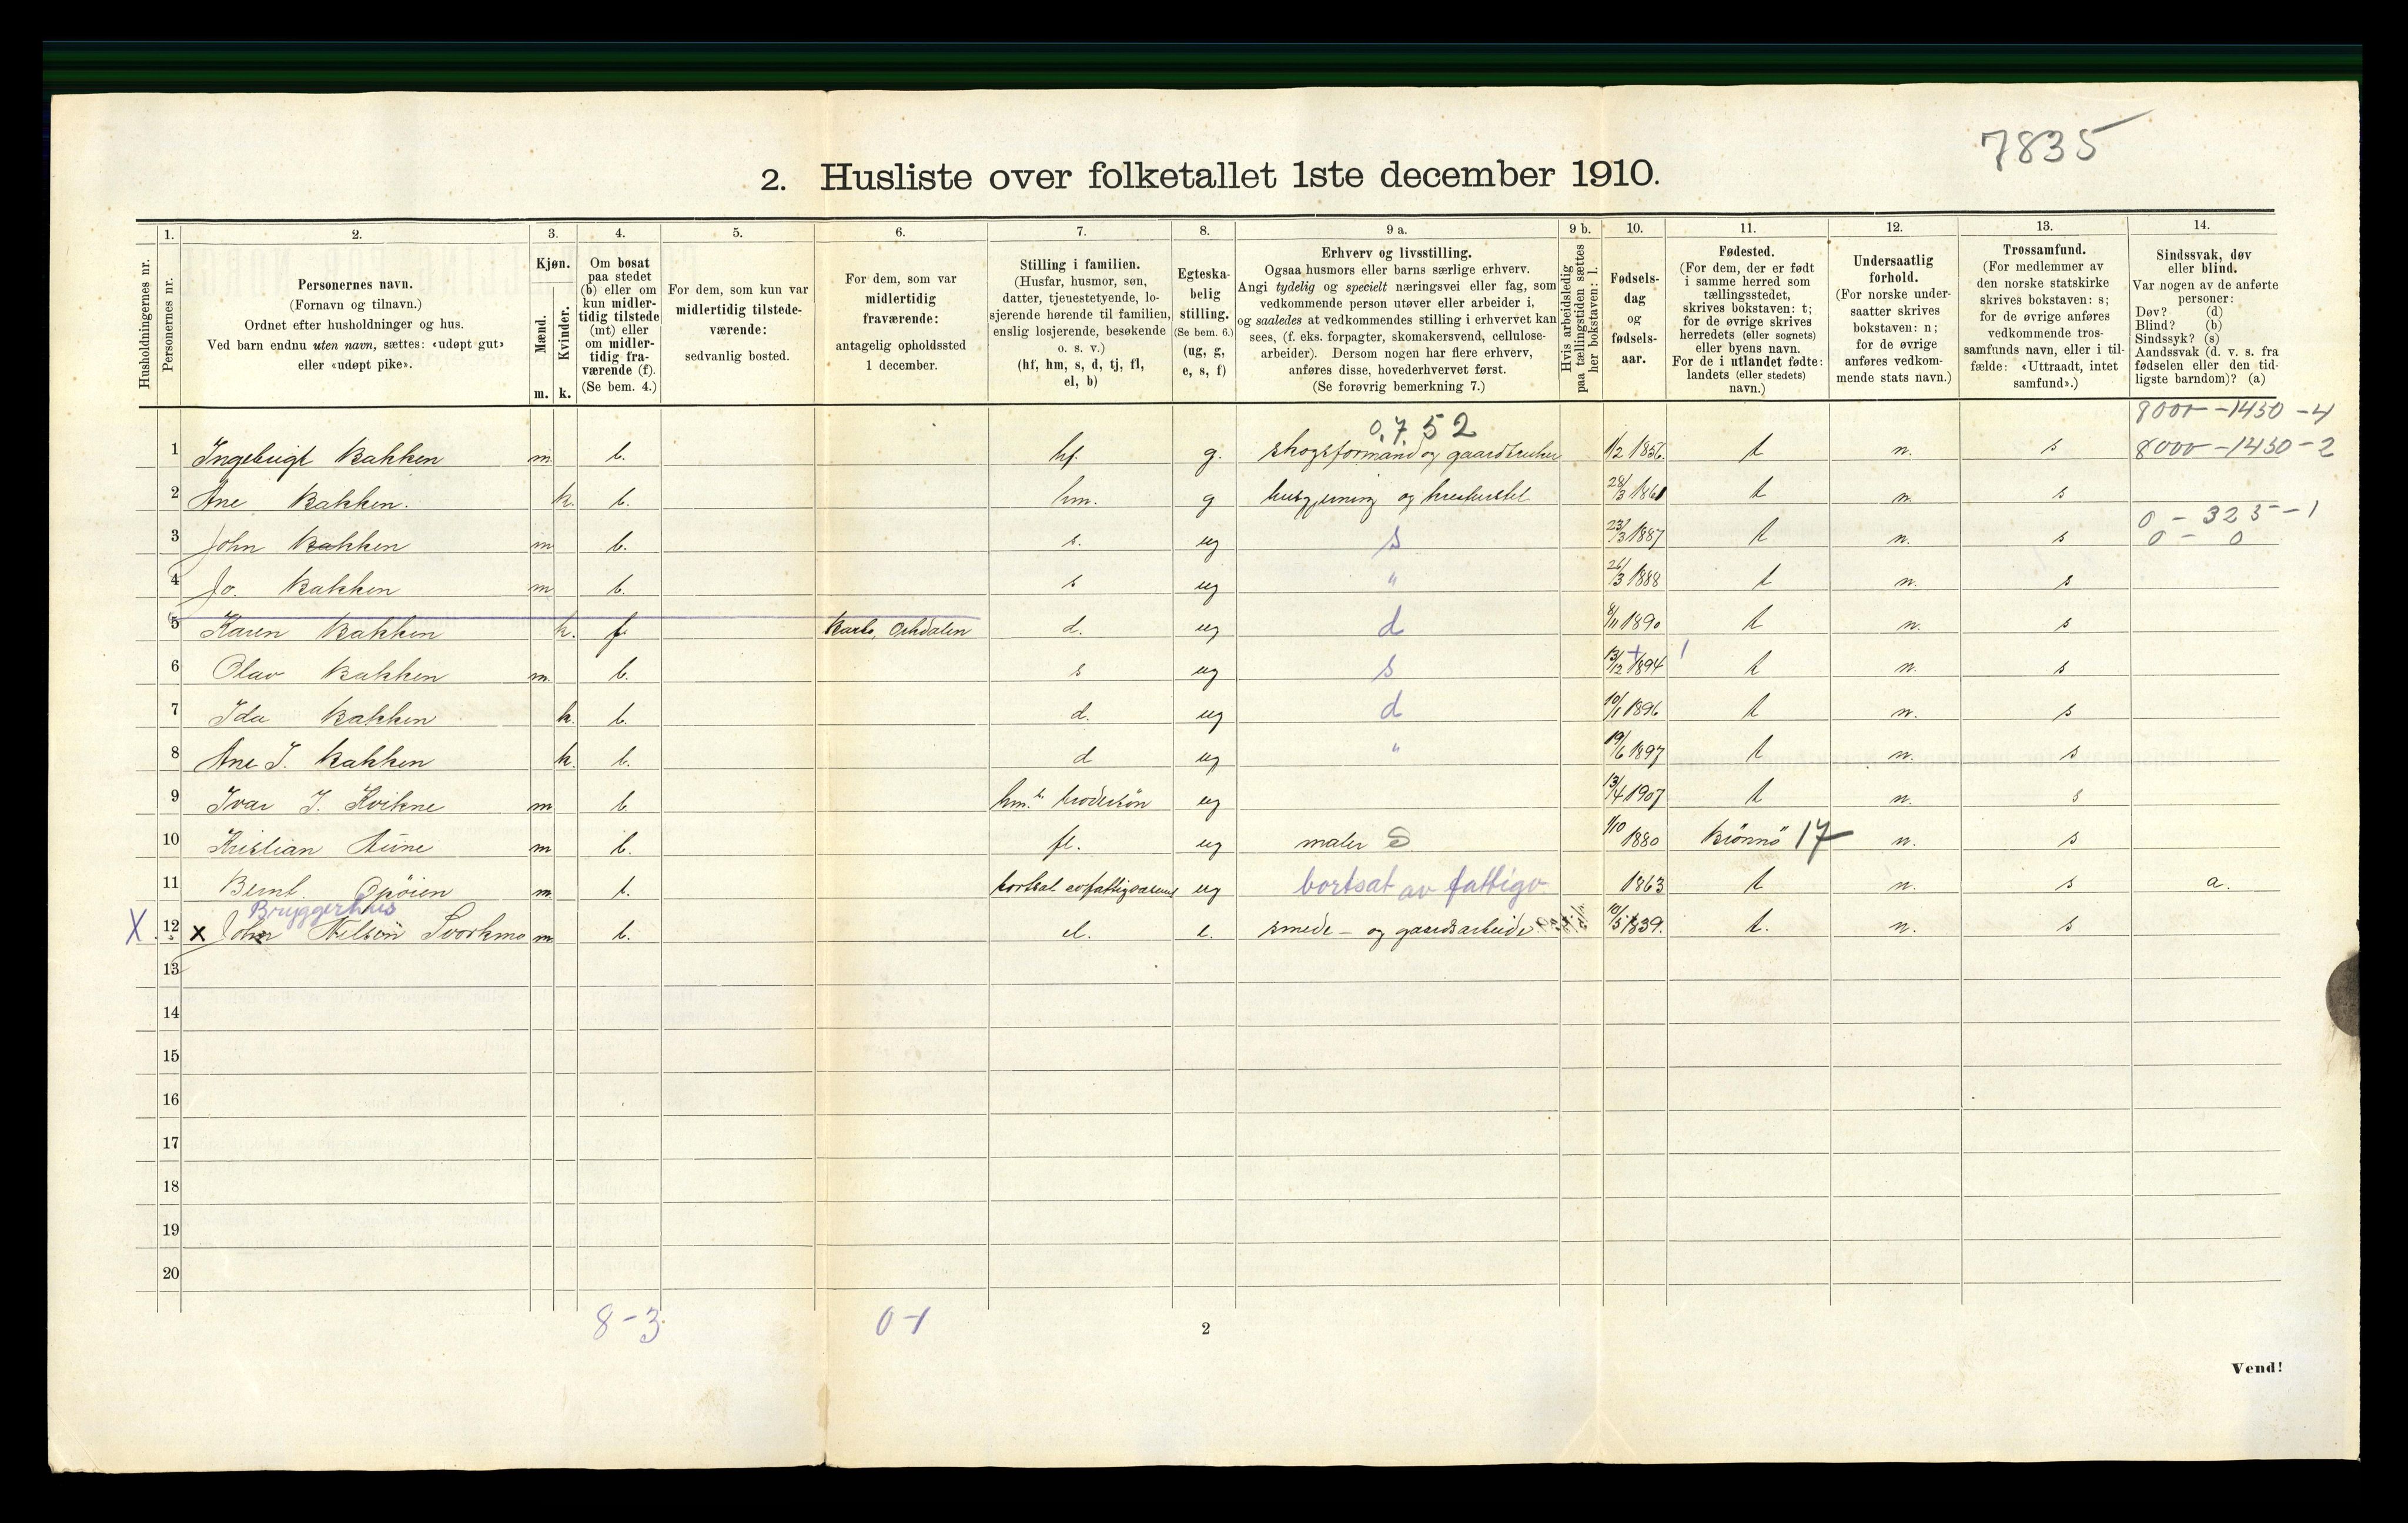 7835
2. Husliste over folketallet 1ste december 1910.
Husholdningernes nr.
1.
Personernes nr.
2.
Personernes navn.
(Fornavn og tilnavn.)
Ordnet efter husholdninger og hus.
Ved barn endnu uten navn, sættes: «udøpt gut»
eller «udøpt pike».
3.
Kjøn.
Mænd.
Kvinder.
m. k.
4.
Om bosat
paa stedet
(b) eller om
kun midler-
tidig tilstede
(mt) eller
om midler-
tidig fra-
værende (f).
(Se bem. 4.)
5.
For dem, som kun var
midlertidig tilstede-
værende:
sedvanlig bosted.
6.
For dem, som var
midlertidig
fraværende:
antagelig opholdssted
1 december.
7.
Stilling i familien.
(Husfar, husmor, søn,
datter, tjenestetyende, lo-
sjerende hørende til familien,
enslig losjerende, besøkende
o. s. v.)
(hf, hm, s, d, tj, fl,
el, b)
8.
Egteska-
belig
stilling.
(Se bem. 6.)
(ug, g,
e, s, f)
9 a.
Erhverv og livsstilling.
Ogsaa husmors eller barns særlige erhverv.
Angi tydelig og specielt næringsvei eller fag, som
vedkommende person utøver eller arbeider i,
og saaledes at vedkommendes stilling i erhvervet kan
sees, (f. eks. forpagter, skomakersvend, cellulose-
arbeider). Dersom nogen har flere erhverv,
anføres disse, hovederhvervet først.
(Se forøvrig bemerkning 7.)
9 b.
Hvis arbeidsledig
paa tællingstiden sættes
her bokstaven: l.
10.
Fødsels-
dag
og
fødsels-
aar.
11.
Fødested.
(For dem, der er født
i samme herred som
tællingsstedet,
skrives bokstaven: t;
for de øvrige skrives
herredets (eller sognets)
eller byens navn.
For de i utlandet fødte:
landets (eller stedets)
navn.)
12.
Undersaatlig
forhold.
(For norske under-
saatter skrives
bokstaven: n;
for de øvrige
anføres vedkom-
mende stats navn.)
13.
Trossamfund.
(For medlemmer av
den norske statskirke
skrives bokstaven: s;
for de øvrige anføres
vedkommende tros-
samfunds navn, eller i til-
fælde: «Uttraadt, intet
samfund».)
14.
Sindssvak, døv
eller blind.
Var nogen av de anførte
personer:
Døv? (d)
Blind? (b)
Sindssyk? (s)
Aandssvak (d. v. s. fra
fødselen eller den tid-
ligste barndom)? (a)
0.7.52 8000-1430-4
1 Ingebrigt Bakken m. b. hf. g. skogsformand og gaardbruker 1/2 1856. t n. s 8000-1430-2
2 Ane Bakken. k. b. hm. g husgjerning og kreaturstel 28/3 1861 t n. s
0 - 325-1
3 John Bakken m b. s. ug s 23/3 1887 t n. s 0 - 0
4 Jo. Bakken m b. s ug " 26/3 1888 t n. s
5 Karen Bakken k. f Orkdalen d. ug d 8/11 1890 t n. s
6 Olav Bakken m. b. s ug s 13/12 1894 t n. s
7 Ida Bakken k. b. d. ug d 10/1 1896 t n. s
8 Ane I. Bakken k. b. d ug " 19/6 1897 t n. s
9 Ivar J. Kvikne m b. hm.s brodersøn ug 13/4 1907 t n. s
10 Kristian Aune m b. fl. ug maler S 1/10 1880 Brönnö 17 n. s
11 Bernt Opöien m. b. bortsat av fattigvæsenet ug bortsat av fattigv 1863 t n. s a.
Bruggerhus
X. 12 x John Nilsen Svorkmo m b. el. e. smede- og gaardsarbeide 10/5 1839. t. n. s
13
14
15
16
17
18
19
20
8-3 0-1
2
Vend!